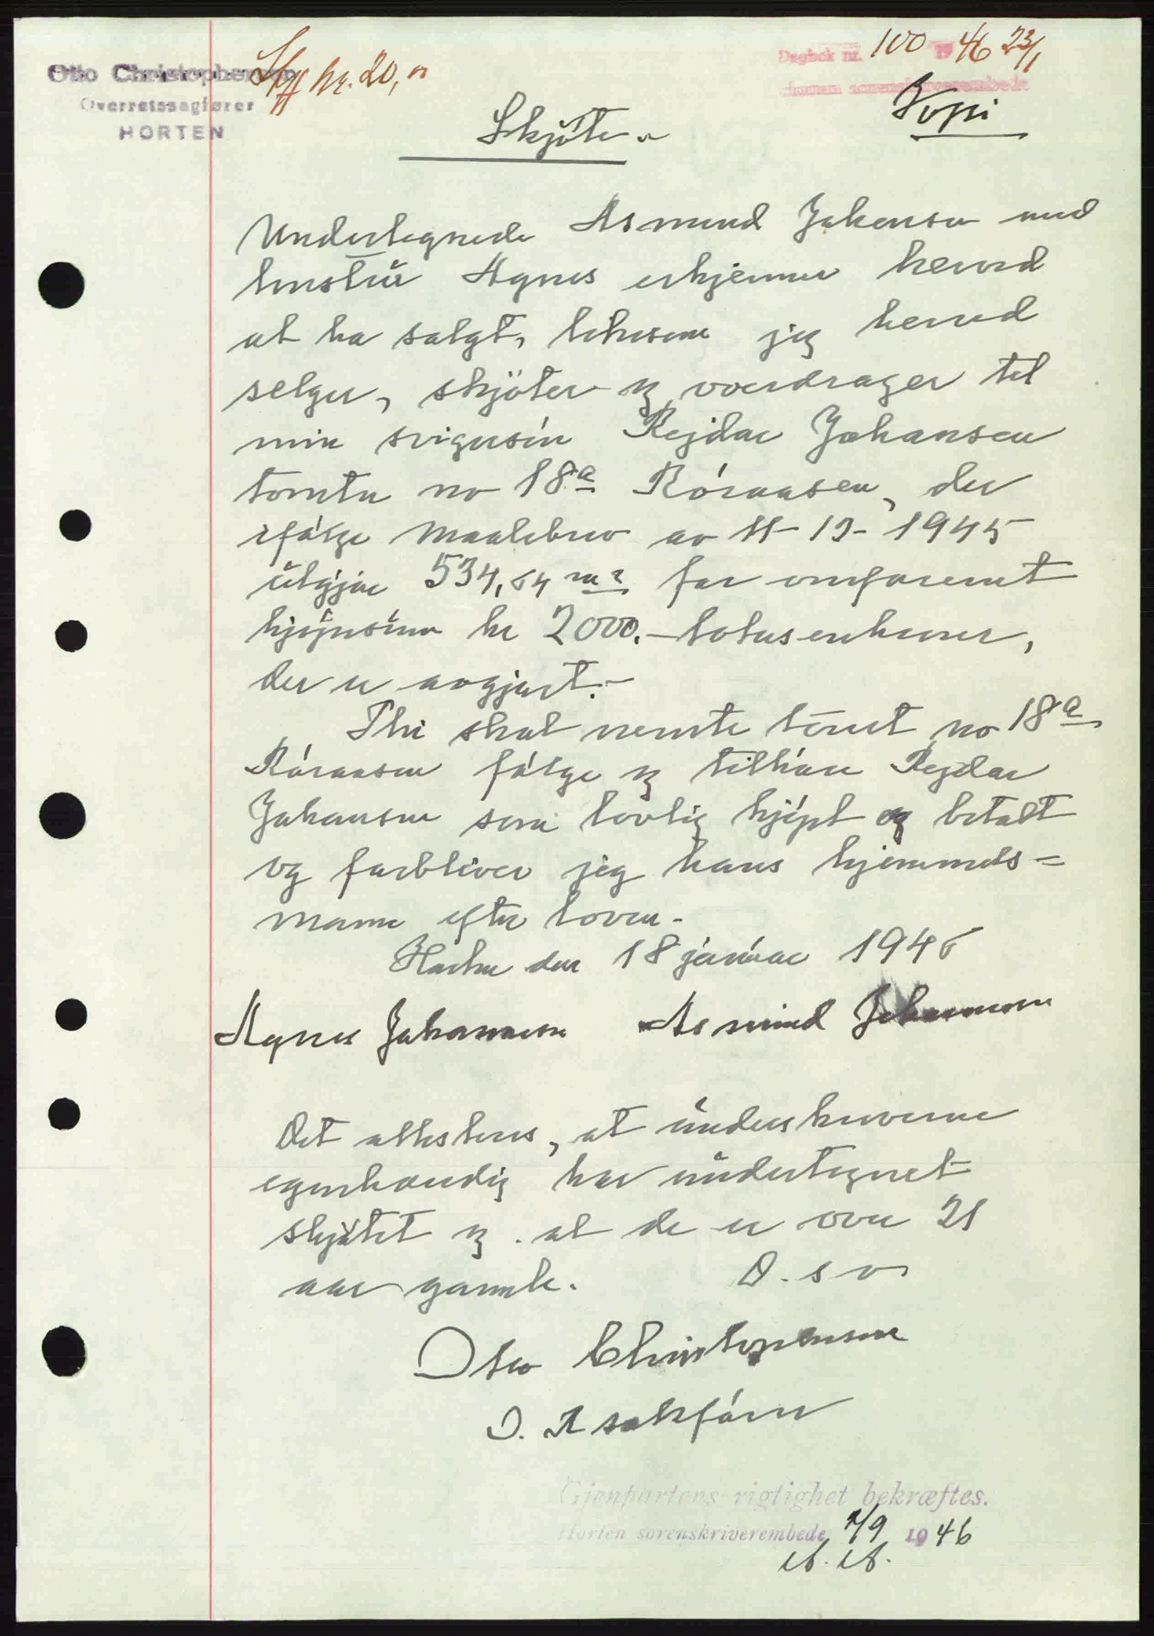 Otto Christophersen
Overretssagfører
HORTEN
Stpl kr. 20,-
Dagbok nr. 100 1946 23/1
Horten sorenskriverembede
Kopi
Skjøte
Undertegnede Asmund Johansen med
hustru Agnes erkjenner herved
at ha solgt, likesom jeg herved
selger, skjøter og overdrager til
min svigersøn Reidar Johansen
tomten no 18a Røraasen, der
ifølge maalebrev av 11-12-1945
utgjør 534,64 m2 for omforenet
kjøpesum kr 2000.- totusenkroner,
der er avgjort.-
Thi skal nevnte tomt no 18a
Røraasen følge og tilhøre Reidar
Johansen som lovlig kjøpt og betalt
og forbliver jeg hans hjemmels-
mann efter loven.
Horten den 18 januar 1946
Agnes Johannesen Asmund Johannesen
Det attesteres, at underskriverne
egenhændig har undertegnet
skjøtet og at de er over 21
aar gamle. D. s o
Otto Christophersen
O. R sakfører
Gjenpartens rigtighet bekræftes.
Horten sorenskriverembede 7/9 1946